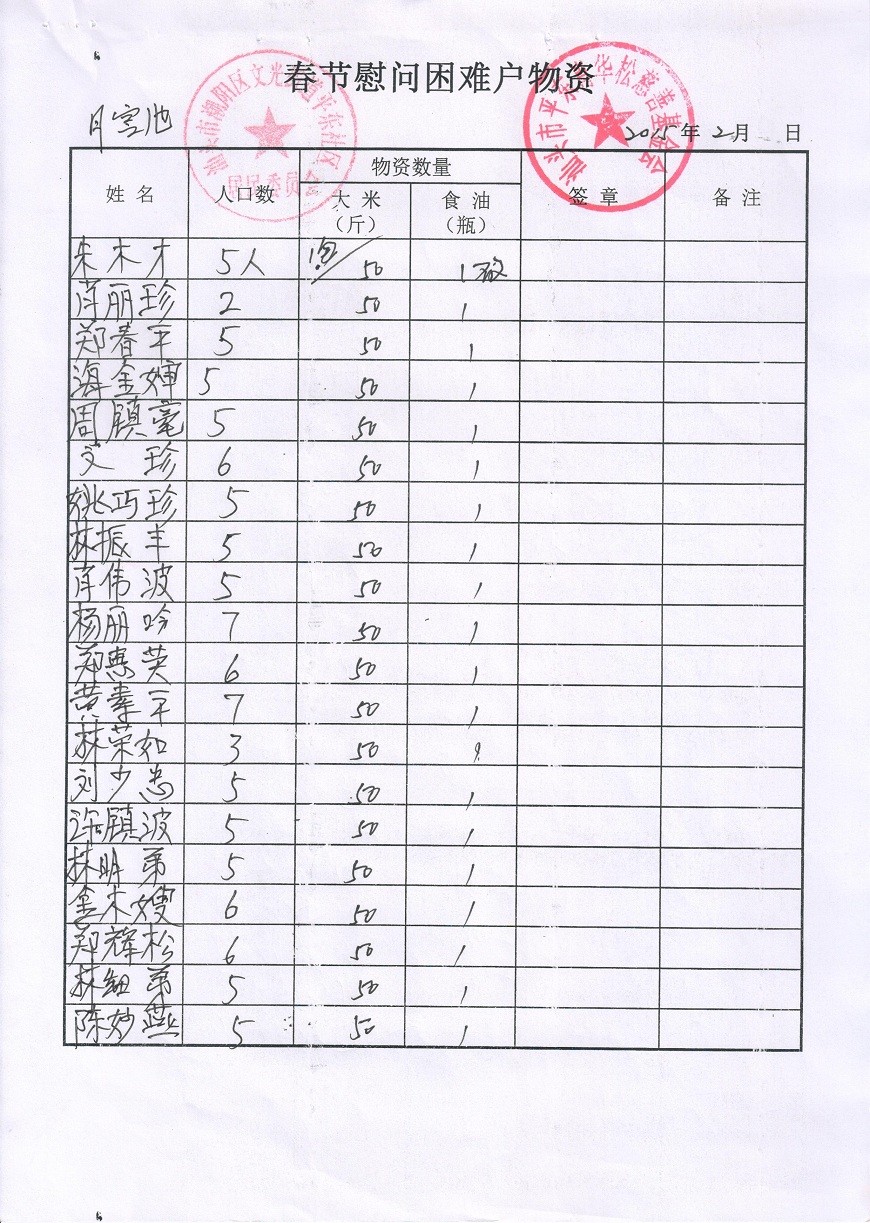 春节慰问困难户物资
汕头市潮阳区文光街道平东社区
居民委员会
汕头市平东 华松慈善基金会
月宫池
2015年2月 日
姓名 人口数 物资数量 签章 备注
大米（斤） 食油（瓶）
朱木才 5人 50 1
肖丽珍 2 50 1
郑春平 5 50 1
海金婵 5 50 1
周镇毫 5 50 1
文珍 6 50 1
姚巧珍 5 50 1
林振丰 5 50 1
肖伟波 5 50 1
杨丽吟 7 50 1
郑惠英 6 50 1
黄素平 7 50 1
林荣如 3 50 1
刘少忠 5 50 1
许镇波 5 50 1
林明弟 5 50 1
金木嫂 6 50 1
郑辉松 6 50 1
林细弟 5 50 1
陈妙燕 5 50 1